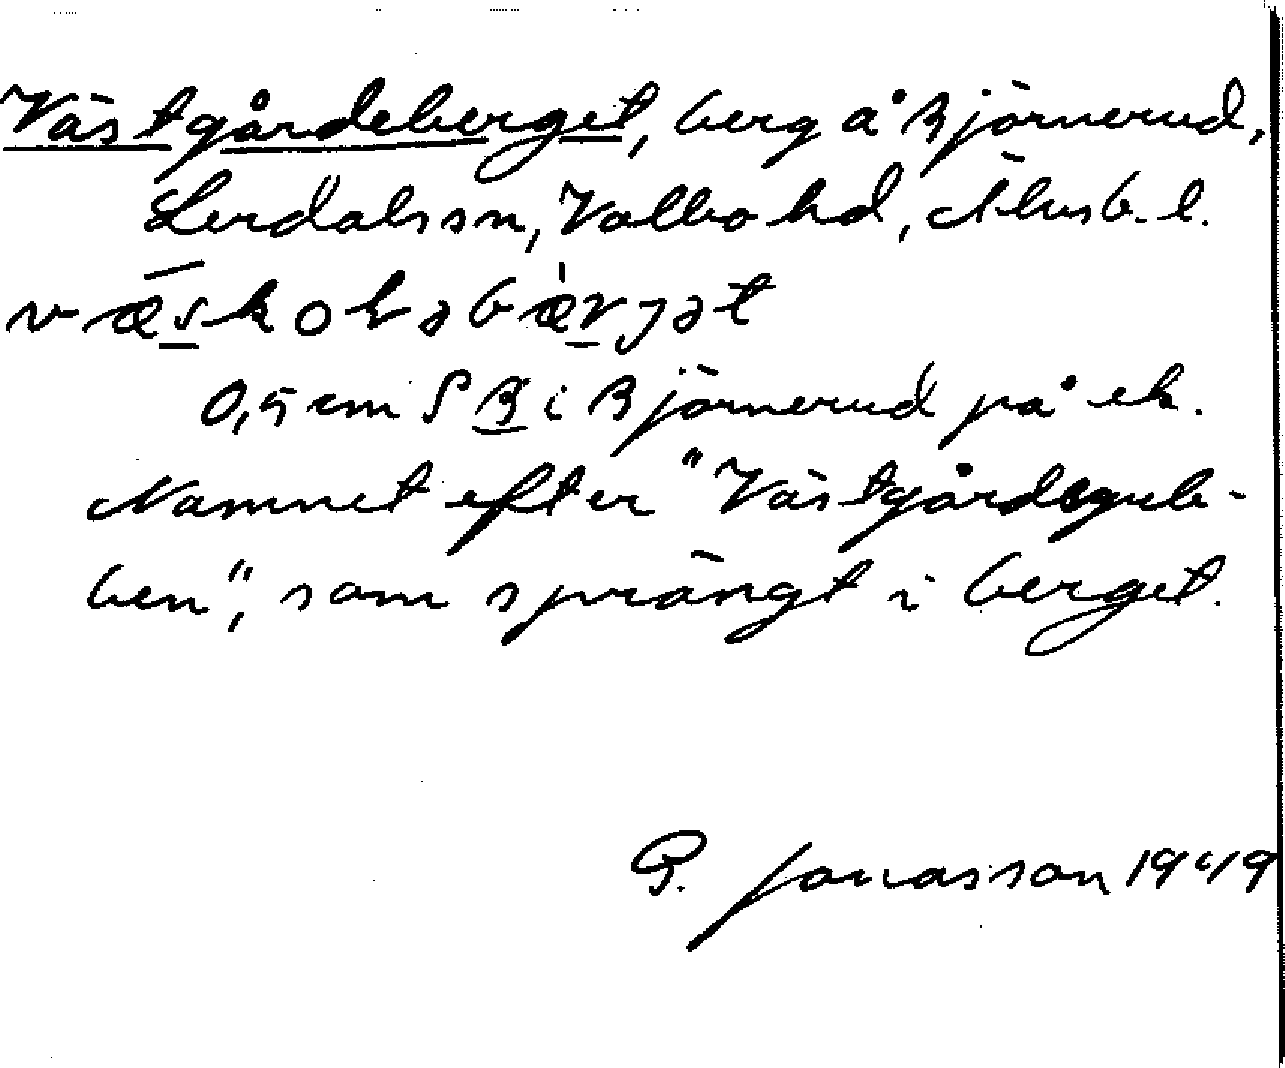 Västgårdeberget, berg å Björnerud,
Lerdals sn, Valbo hd, Älvsb. l.
0,5 cm S B i Björnerud på ek.
Namnet efter "Västgårdsgub-
ben", som sprängt i berget.
G. Jonasson 1949